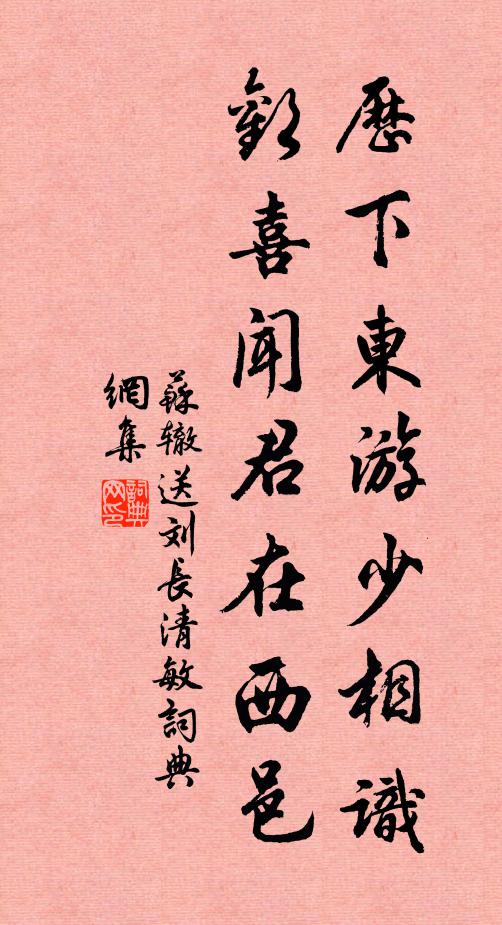 歷下東游少相識
歡喜聞君在西邑
蘇辙送刘長清敏詞典
網集
詞典
网印